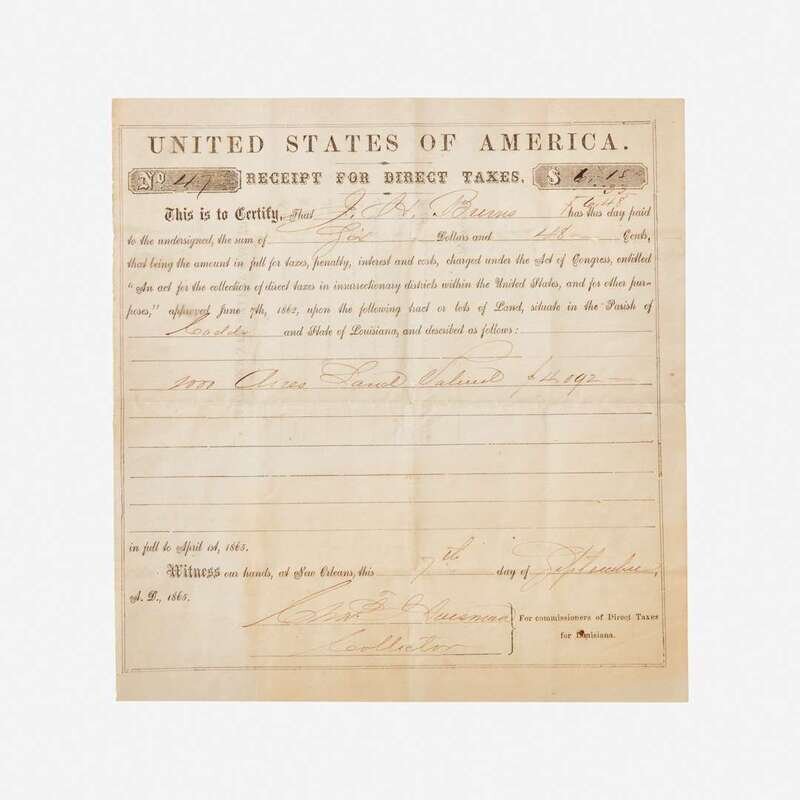 UNITED STATES OF AMERICA.
No 47 RECEIPT FOR DIRECT TAXES. $ 6.15
.33
$ 6.48
This is to Certify, That J. H. Burns has this day paid
to the undersigned, the sum of Six Dollars and 48 Cents,
that being the amount in full for taxes, penalty, interest and costs, charged under the Act of Congress, entitled
"An act for the collection of direct taxes in insurrectionary districts within the United States, and for other pur-
poses," approved June 7th, 1862, upon the following tract or lots of Land, situate in the Parish of
Caddo and State of Louisiana, and described as follows:
Acres Land Valued $4.092
in full to April 1st, 1865.
Witness our hands, at New Orleans, this 7th day of September,
A. D., 1865.
Collector
For commissioners of Direct Taxes
for Louisiana.